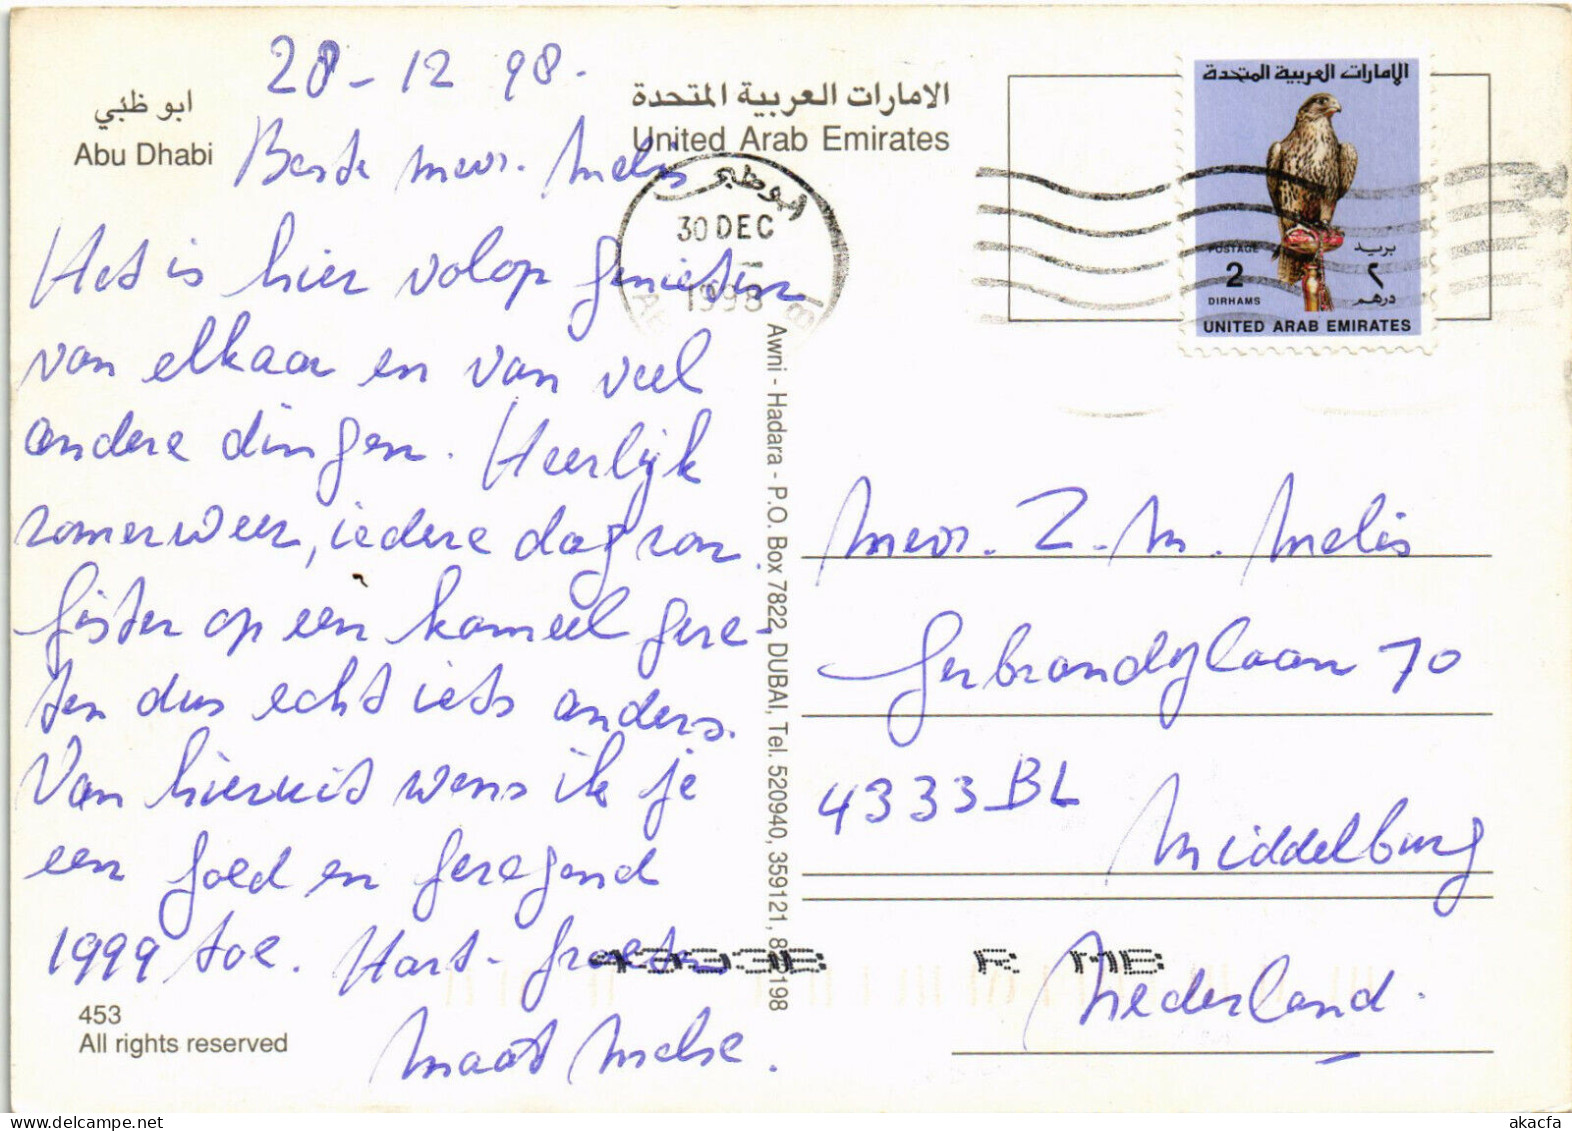 28-12 98.
ابو ظبي
Abu Dhabi
الامارات العربية المتحدة
United Arab Emirates
Beste mevr. Melis
Het is hier volop genieten
van elkaar en van veel
andere dingen. Heerlijk
zomerweer, iedere dag zon.
Gisteren op een kameel gere-
ten dus echt iets anders.
Van hieruit wens ik je
een goed en gezegend
1999 toe. Hart. groeten
Maat
453
All rights reserved
Awni - Hadara - P.O. Box 7822, DUBAI, Tel. 520940, 359121,
ابوظبي
30 DEC
1998
الامارات العربية المتحدة
POSTAGE بريد
2 ٢
DIRHAMS درهم
UNITED ARAB EMIRATES
Mevr. Z. M. Melis
Gerbrandylaan 70
4333 BL
Middelburg
Nederland.
R MB
akacfa